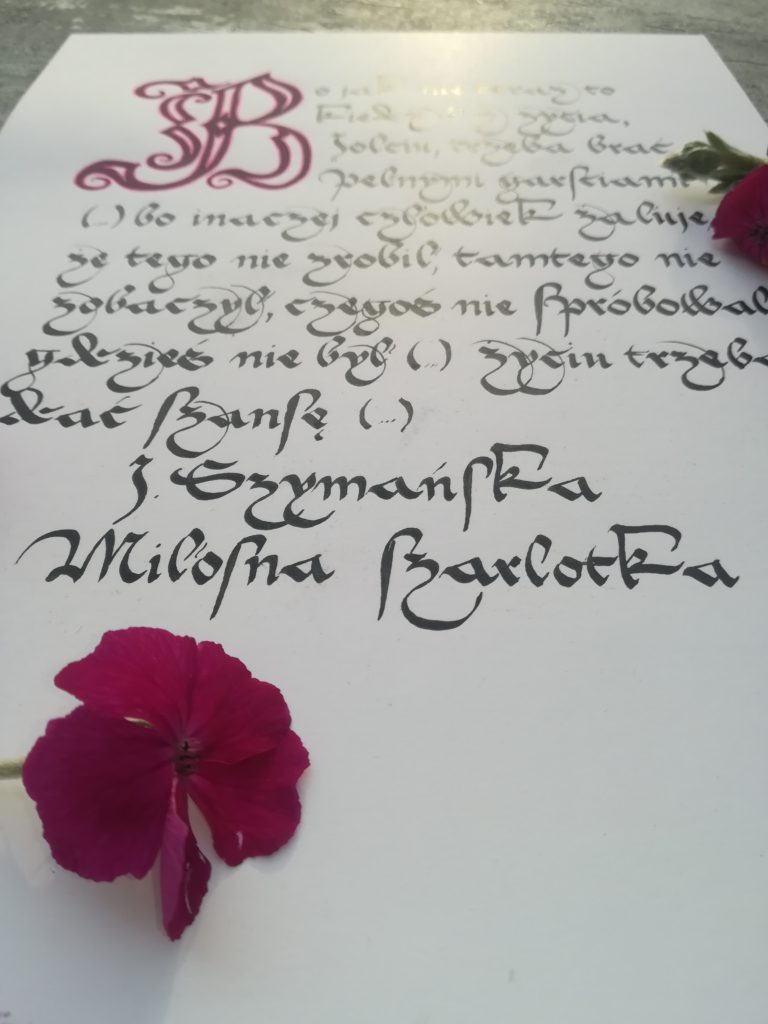 Bo jak nie teraz to
kiedy? Z życia,
Jolciu, trzeba brać
pełnymi garściami
(...) bo inaczej człowiek żałuje,
że tego nie zrobił, tamtego nie
zobaczył, czegoś nie spróbował
gdzieś nie był (...) życiu trzeba
dać szansę (...)
J. Szymańska
Miłosna szarlotka